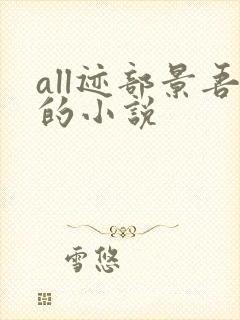 all迹部景吾
的小说
雪悠